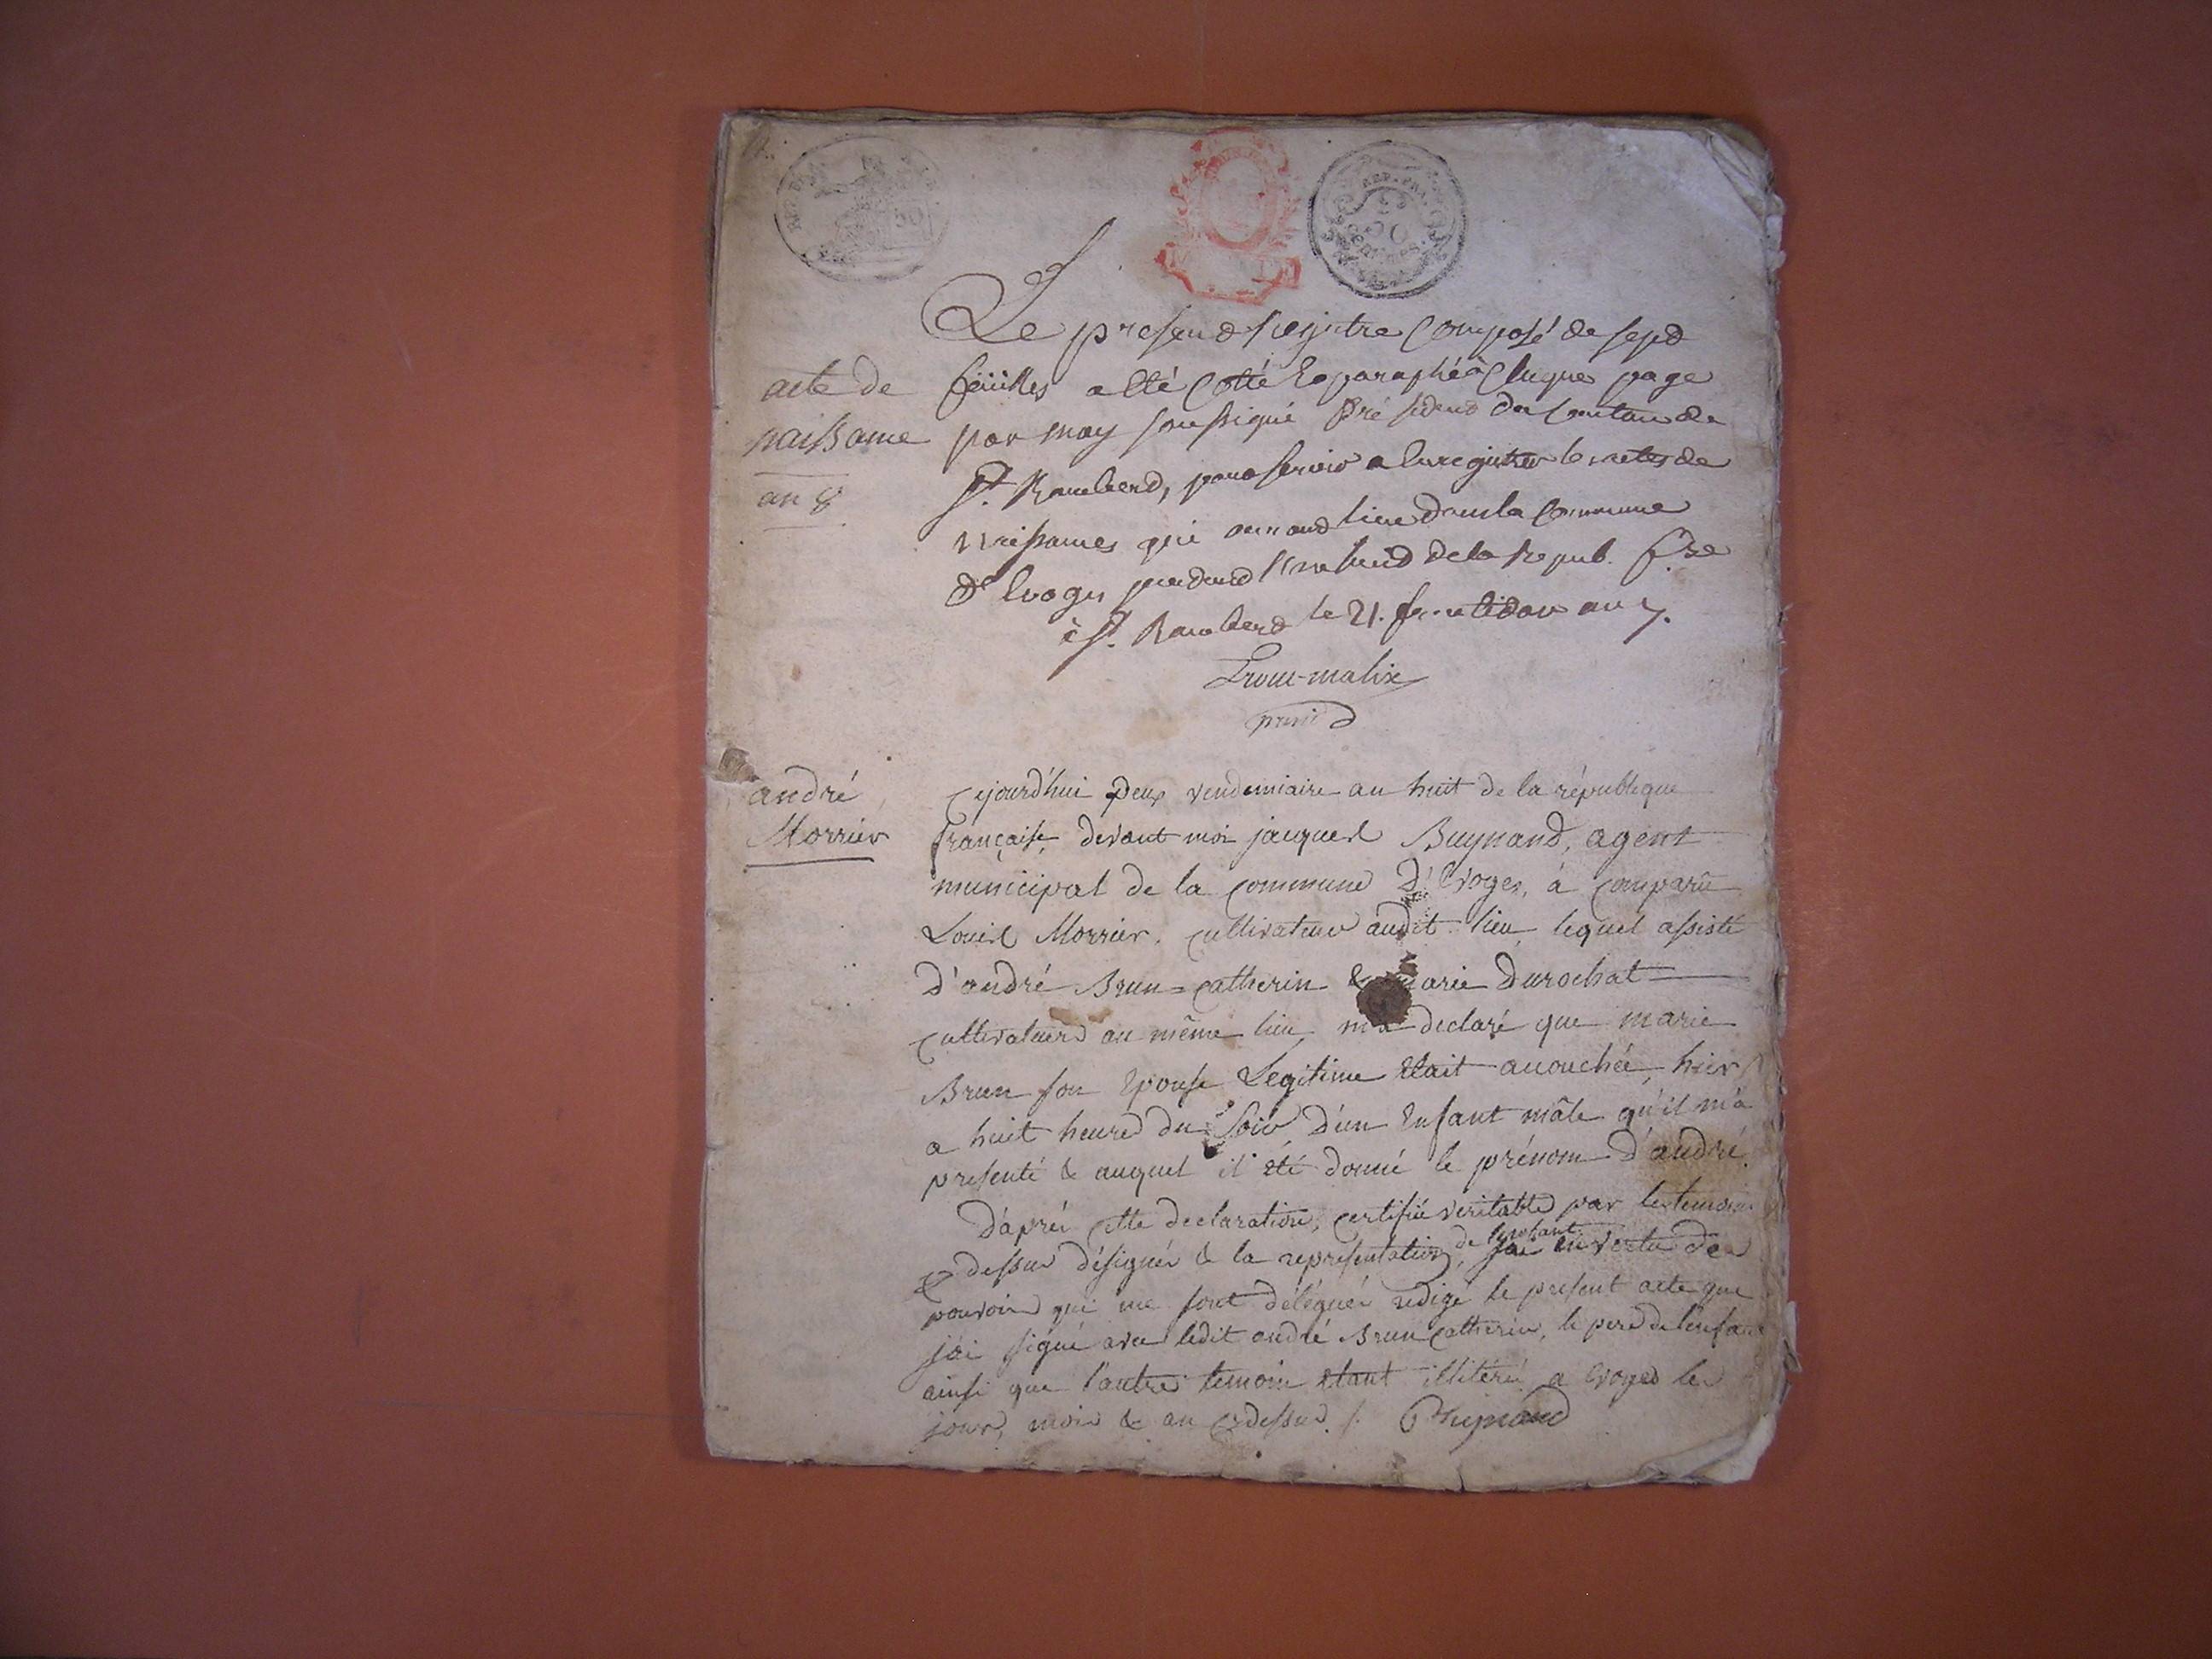 acte de
naissance
an 8
Le presend registre composé de sept
feüilles a eté cotté & paraphé à chaque page
par moy soussigné président du canton de
St. Rambend, pour servir a enregistrer les actes de
naissances qui auront lieu dans la commune
d'Evoges pendand l'an huid de la Repub. f.se
à St. Rambend le 21. fructidor an 7.
presid
andré
Morrier
Cejourd'hui deux vendemiaire an huit de la républeque
française, devant moi jacques Buynand, agent
municipal de la commune d'Evoges, à comparu
Louis Morrier, cultivateur audit lieu, lequel assisté
d'andré Brun=catherin & marie Durochat
cultivateurs au même lieu, m'a declaré que marie
Brun son Epouse Legitime était acouchée, hier
a huit heures du Soir d'un Enfant mâle qu'il m'a
presenté & auquel il été donné le prénom d'andré.
D'après cette declaration, certifiée veritable par les temoins
cy dessus désignés & la representation de l'enfant, j'ai en vertu des
pouvoirs qui me sont délégués redigé le present acte que
j'ai signé avec ledit andré Brun Catherin, le pere de l'enfant
ainsi que l'autre temoin étant illitérés a Evoges les
jour, mois & an cydessus /. Buynand